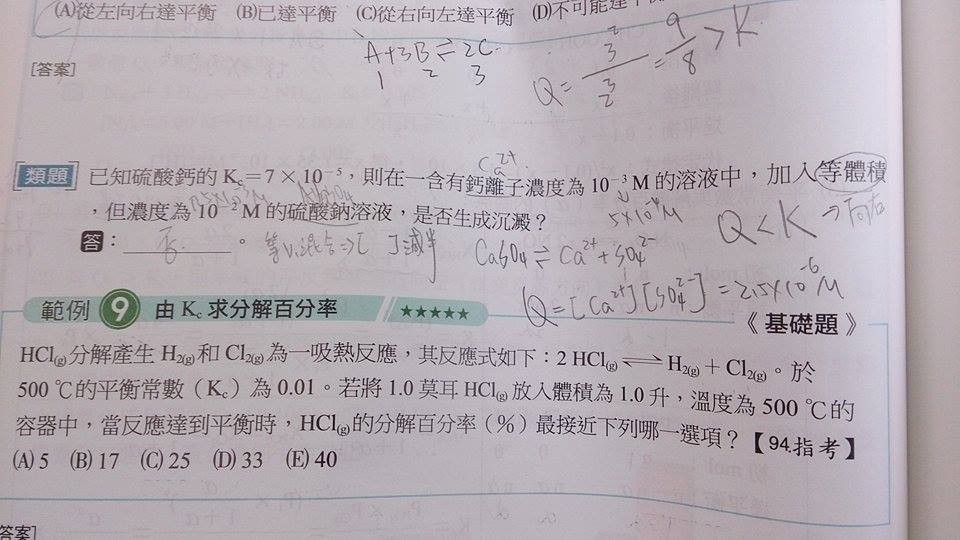 (A)從左向右達平衡 (B)已達平衡 (C)從右向左達平衡 (D)不可能達平
A+3B⇌2C
1 2 3
Q= = 9/8 > K
[答案]
Ca²⁺
類題 已知硫酸鈣的 Kc=7×10⁻⁵,則在一含有鈣離子濃度為 10⁻³ M 的溶液中,加入等體積
,但濃度為 10⁻² M 的硫酸鈉溶液,是否生成沉澱?
5×10⁻⁴M
Q<K →向右
答: 否 。 等V混合⇒[ ]減半 CaSO4⇌Ca²⁺+SO4²⁻
Q=[Ca²⁺][SO4²⁻]=2.5×10⁻⁶M
範例 9 由 Kc 求分解百分率 ★★★★★
《基礎題》
HCl(g) 分解產生 H2(g) 和 Cl2(g) 為一吸熱反應,其反應式如下:2 HCl(g) ⇌ H2(g) + Cl2(g)。於
500 ℃的平衡常數(Kc)為 0.01。若將 1.0 莫耳 HCl(g) 放入體積為 1.0 升,溫度為 500 ℃的
容器中,當反應達到平衡時,HCl(g) 的分解百分率(%)最接近下列哪一選項?【94.指考】
(A) 5 (B) 17 (C) 25 (D) 33 (E) 40
答案]